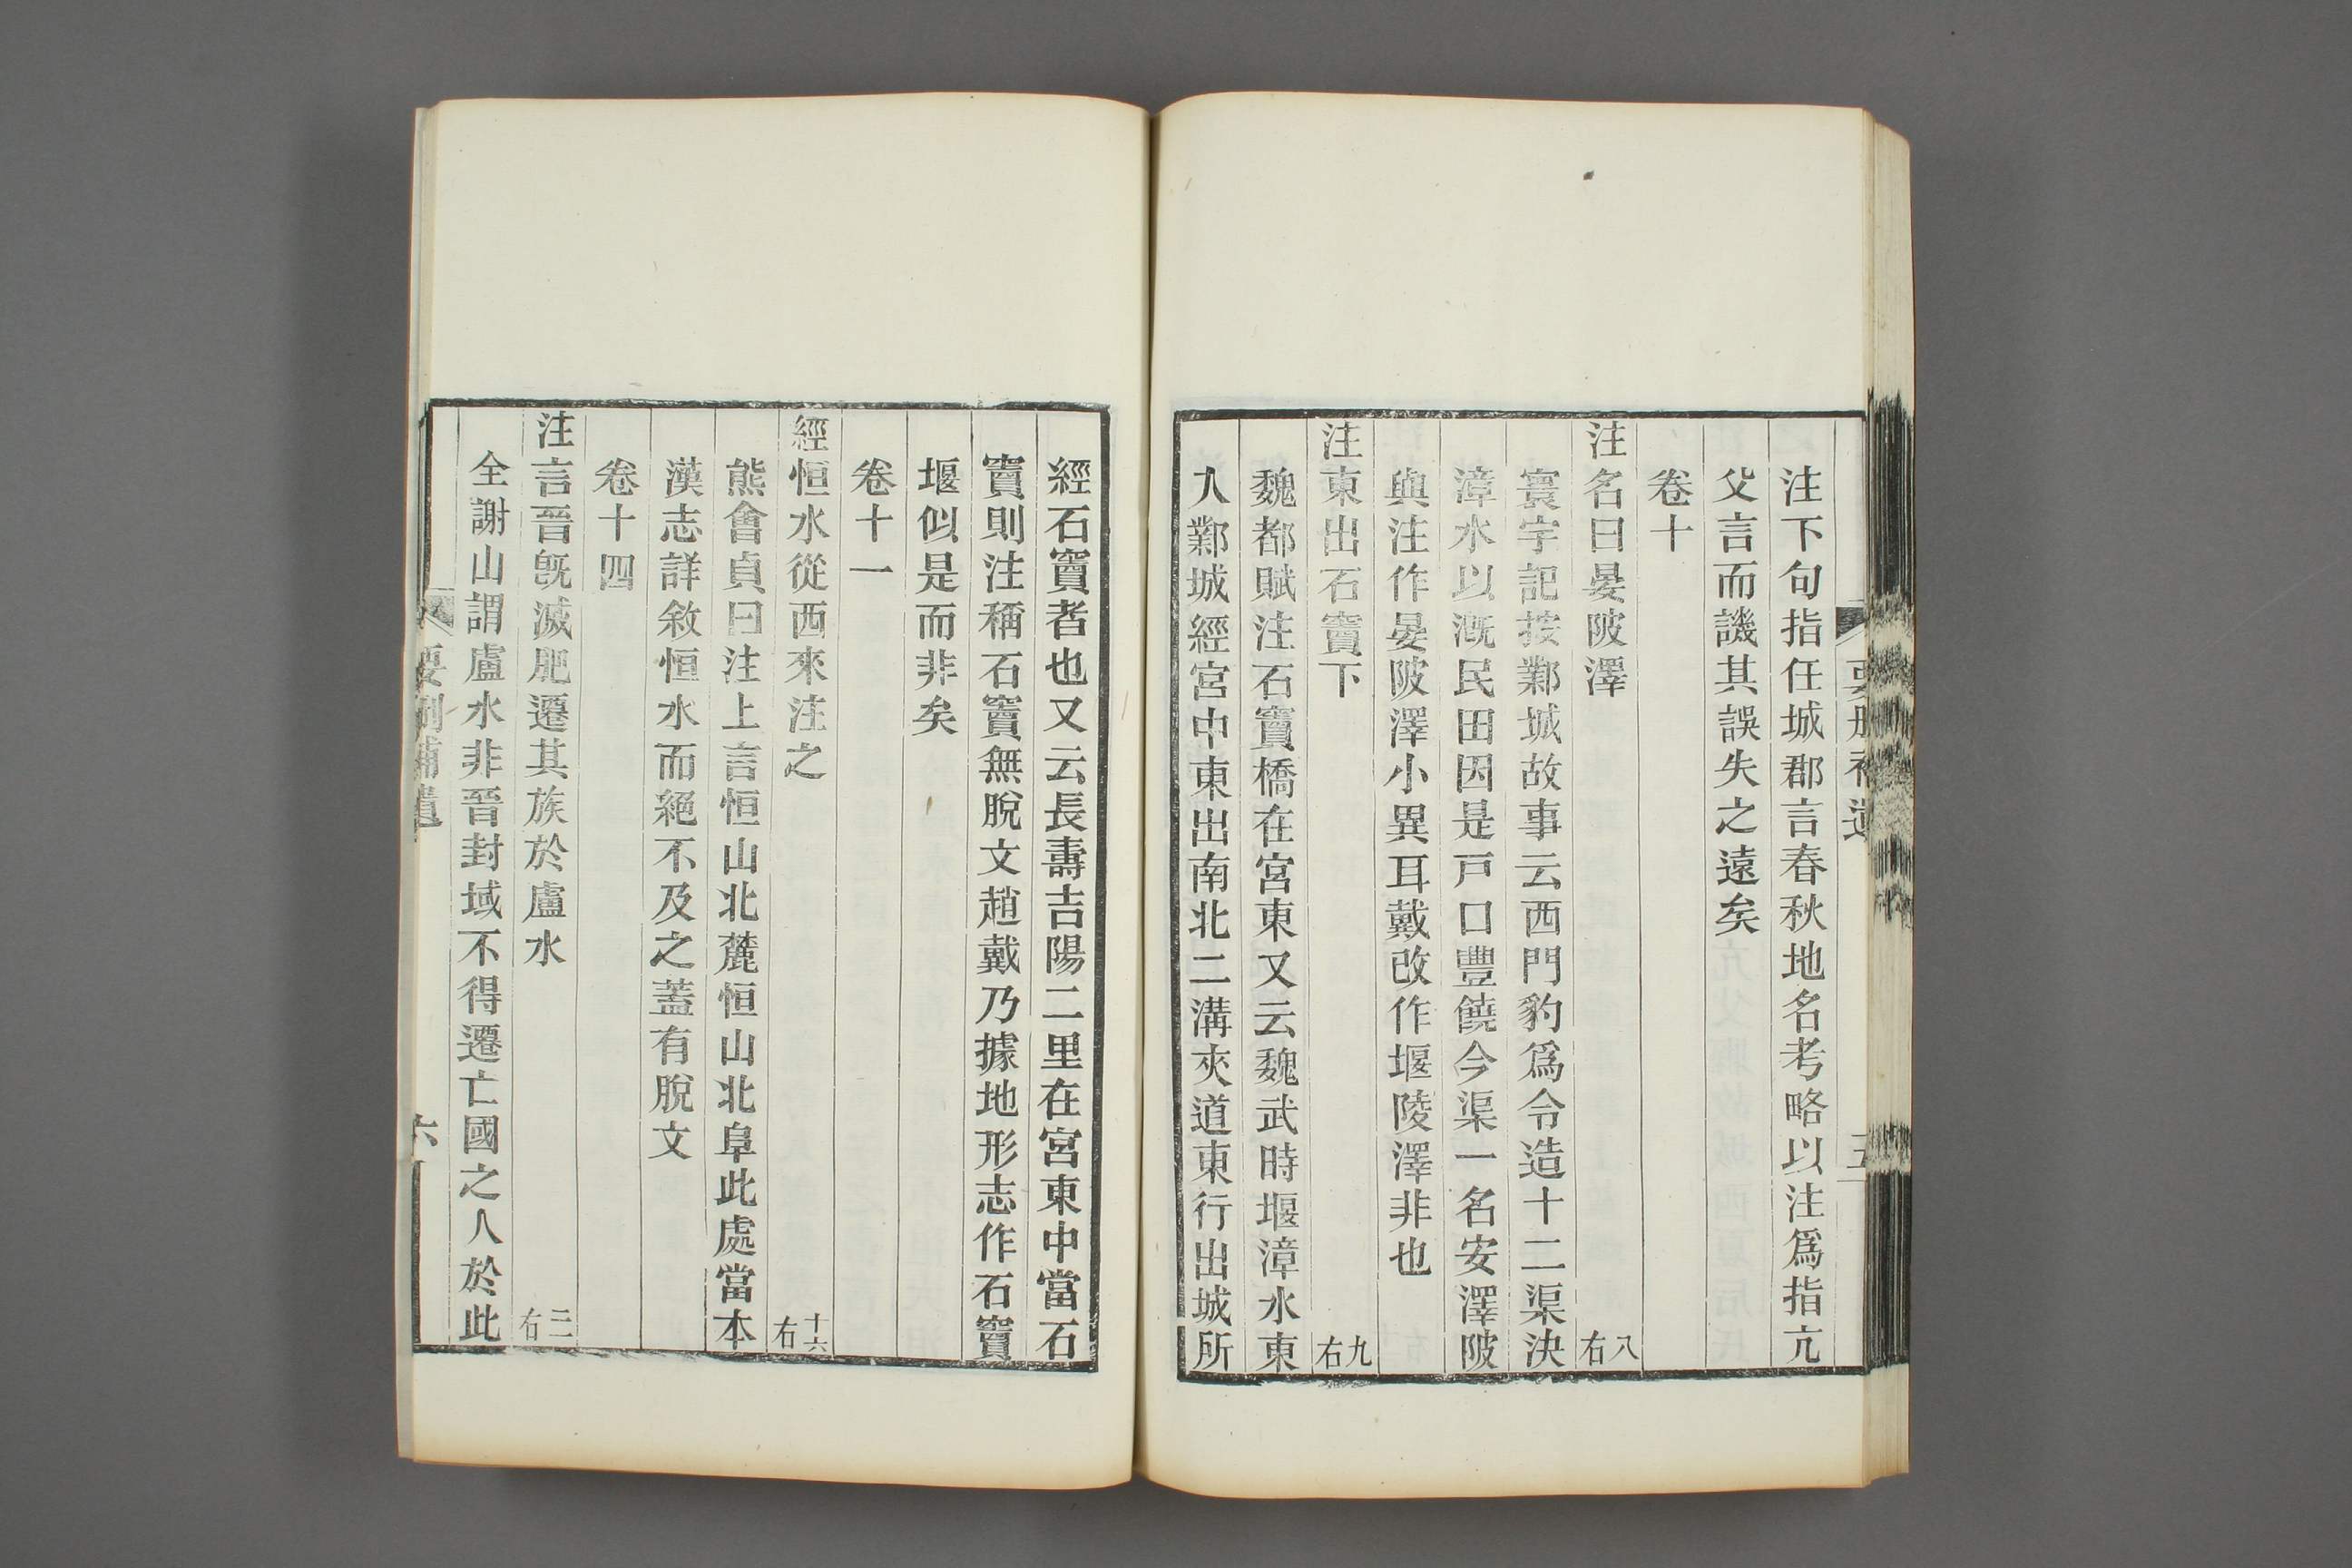 要刪補遺
五
注下句指任城郡言春秋地名考略以注爲指亢
父言而譏其誤失之遠矣
卷十
注名曰晏陂澤 八右
寰宇記按鄴城故事云西門豹爲令造十二渠決
漳水以漑民田因是戸口豐饒今渠一名安澤陂
與注作晏陂澤小異耳戴改作堰陵澤非也
注東出石竇下 九右
魏都賦注石竇橋在宮東又云魏武時堰漳水東
入鄴城經宮中東出南北二溝夾道東行出城所
經石竇者也又云長壽吉陽二里在宮東中當石
竇則注稱石竇無脫文趙戴乃據地形志作石竇
堰似是而非矣
卷十一
經恒水從西來注之 十六右
熊會貞曰注上言恒山北麓恒山北阜此處當本
漢志詳敘恒水而絕不及之蓋有脫文
卷十四
注言晉旣滅肥遷其族於盧水 二右
全謝山謂盧水非晉封域不得遷亡國之人於此
要刪補遺
六